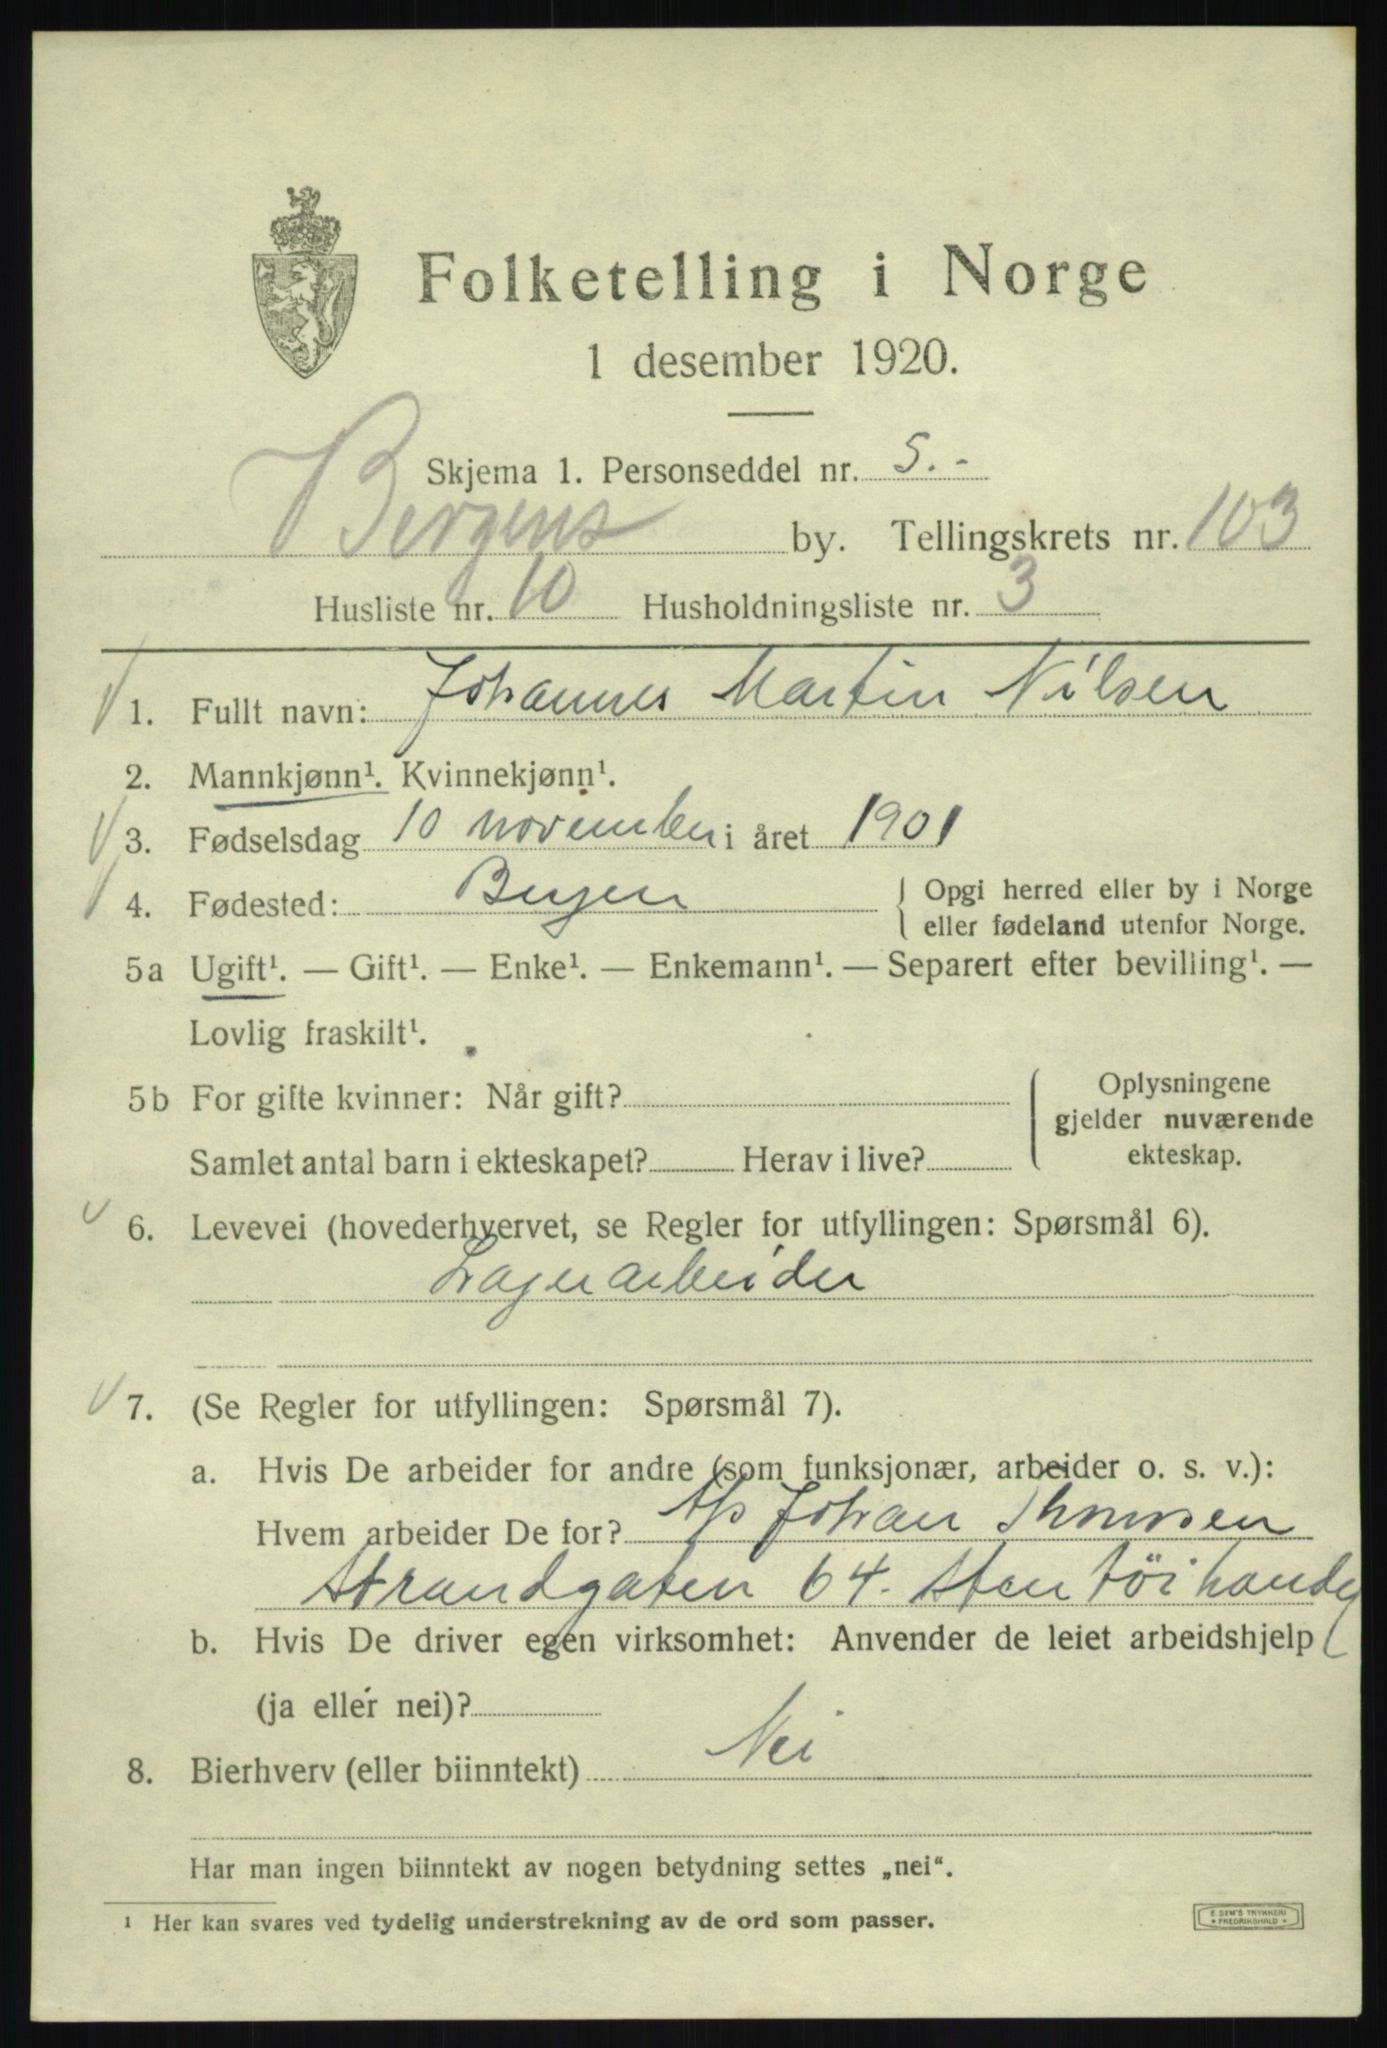 Folketelling i Norge
1 desember 1920.
Skjema 1. Personseddel nr. 5.-
Bergens by. Tellingskrets nr. 103
Husliste nr. 10 Husholdningsliste nr. 3
1. Fullt navn: Johannes Martin Nilsen
2. Mannkjønn¹. Kvinnekjønn¹.
3. Fødselsdag 10 november i året 1901
4. Fødested: Bergen { Opgi herred eller by i Norge
eller fødeland utenfor Norge.
5a Ugift¹. — Gift¹. — Enke¹. — Enkemann¹. — Separert efter bevilling¹. —
Lovlig fraskilt¹.
5b For gifte kvinner: Når gift? { Oplysningene
gjelder nuværende
Samlet antal barn i ekteskapet? Herav i live? ekteskap.
6. Levevei (hovederhvervet, se Regler for utfyllingen: Spørsmål 6).
Lagerarbeider
7. (Se Regler for utfyllingen: Spørsmål 7).
a. Hvis De arbeider for andre (som funksjonær, arbeider o. s. v.):
Hvem arbeider De for? A/s Johan Thomsen
Strandgaten 64. Stentöihandel
b. Hvis De driver egen virksomhet: Anvender de leiet arbeidshjelp
(ja eller nei)?
8. Bierhverv (eller biinntekt) Nei
Har man ingen biinntekt av nogen betydning settes „nei“.
¹ Her kan svares ved tydelig understrekning av de ord som passer.
E. SEM'S TRYKKERI
* FREDRIKSHALD *